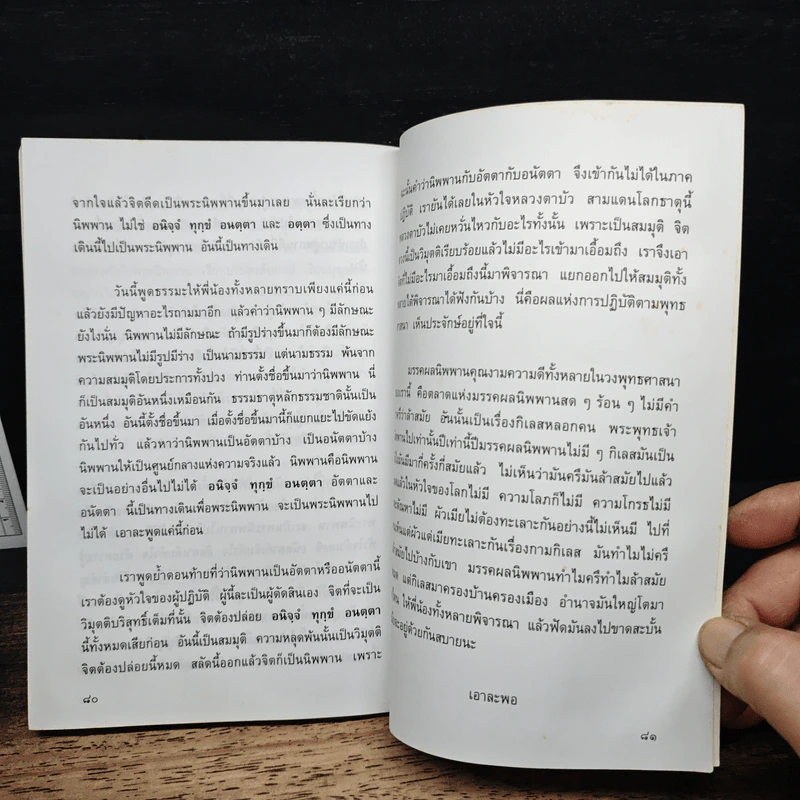 จากใจแล้วจิตดีดเป็นพระนิพพานขึ้นมาเลย นั่นละเรียกว่า
นิพพาน ไม่ใช่ อนิจฺจํ ทุกฺขํ อนตฺตา และ อตฺตา ซึ่งเป็นทาง
เดินนี้ไปเป็นพระนิพพาน อันนี้เป็นทางเดิน
วันนี้พูดธรรมะให้พี่น้องทั้งหลายทราบเพียงแค่นี้ก่อน
แล้วยังมีปัญหาอะไรถามมาอีก แล้วคำว่านิพพาน ๆ มีลักษณะ
ยังไงนั่น นิพพานไม่มีลักษณะ ถ้ามีรูปร่างขึ้นมาก็ต้องมีลักษณะ
พระนิพพานไม่มีรูปมีร่าง เป็นนามธรรม แต่นามธรรม พ้นจาก
ความสมมุติโดยประการทั้งปวง ท่านตั้งชื่อขึ้นมาว่านิพพาน นี่
ก็เป็นสมมุติอันหนึ่งเหมือนกัน ธรรมธาตุหลักธรรมชาตินั้นเป็น
อันหนึ่ง อันนี้ตั้งชื่อขึ้นมา เมื่อตั้งชื่อขึ้นมานี้ก็แยกแยะไปขัดแย้ง
กันไปทั่ว แล้วหาว่านิพพานเป็นอัตตาบ้าง เป็นอนัตตาบ้าง
นิพพานให้เป็นศูนย์กลางแห่งความจริงแล้ว นิพพานคือนิพพาน
จะเป็นอย่างอื่นไปไม่ได้ อนิจฺจํ ทุกฺขํ อนตฺตา อัตตาและ
อนัตตา นี้เป็นทางเดินเพื่อพระนิพพาน จะเป็นพระนิพพานไป
ไม่ได้ เอาละพูดแค่นี้ก่อน
เราพูดย้ำตอนท้ายที่ว่านิพพานเป็นอัตตาหรืออนัตตานี้
เราต้องดูหัวใจของผู้ปฏิบัติ ผู้นี้ละเป็นผู้ตัดสินเอง จิตที่จะเป็น
วิมุตติบริสุทธิ์เต็มที่นั้น จิตต้องปล่อย อนิจฺจํ ทุกฺขํ อนตฺตา
นี้ทั้งหมดเสียก่อน อันนี้เป็นสมมุติ ความหลุดพ้นนั้นเป็นวิมุตติ
จิตต้องปล่อยนี้หมด สลัดนี้ออกแล้วจิตก็เป็นนิพพาน เพราะ
๘๐
ฉะนั้นคำว่านิพพานกับอัตตากับอนัตตา จึงเข้ากันไม่ได้ในภาค
ปฏิบัติ เรายันได้เลยในหัวใจหลวงตาบัว สามแดนโลกธาตุนี้
หลวงตาบัวไม่เคยหวั่นไหวกับอะไรทั้งนั้น เพราะเป็นสมมุติ จิต
ดวงนี้เป็นวิมุตติเรียบร้อยแล้วไม่มีอะไรเข้ามาเอื้อมถึง เราจึงเอา
ที่ไม่มีอะไรมาเอื้อมถึงนี้มาพิจารณา แยกออกไปให้สมมุติทั้ง
หลายได้พิจารณาได้ฟังกันบ้าง นี่คือผลแห่งการปฏิบัติตามพุทธ
ศาสนา เห็นประจักษ์อยู่ที่ใจนี้
มรรคผลนิพพานคุณงามความดีทั้งหลายในวงพุทธศาสนา
ของเรานี้ คือตลาดแห่งมรรคผลนิพพานสด ๆ ร้อน ๆ ไม่มีคำ
ว่าครึว่าล้าสมัย อันนั้นเป็นเรื่องกิเลสหลอกคน พระพุทธเจ้า
นิพพานไปเท่านั้นปีเท่านี้ปีมรรคผลนิพพานไม่มี ๆ กิเลสมันเป็น
มันมีมากี่ครั้งกี่สมัยแล้ว ไม่เห็นว่ามันครึมันล้าสมัยไปแล้ว
แล้วในหัวใจของโลกไม่มี ความโลภก็ไม่มี ความโกรธไม่มี
ตัณหาไม่มี ผัวเมียไม่ต้องทะเลาะกันอย่างนี้ไม่เห็นมี ไปที่
เห็นแต่ผัวแต่เมียทะเลาะกันเรื่องกามกิเลส มันทำไมไม่ครึ
สมัยไปบ้างกับเขา มรรคผลนิพพานทำไมครึทำไมล้าสมัย
แต่กิเลสมาครองบ้านครองเมือง อำนาจมันใหญ่โตมา
ให้พี่น้องทั้งหลายพิจารณา แล้วฟัดมันลงไปขาดสะบั้น
จะอยู่ด้วยกันสบายนะ
เอาละพอ
๘๑